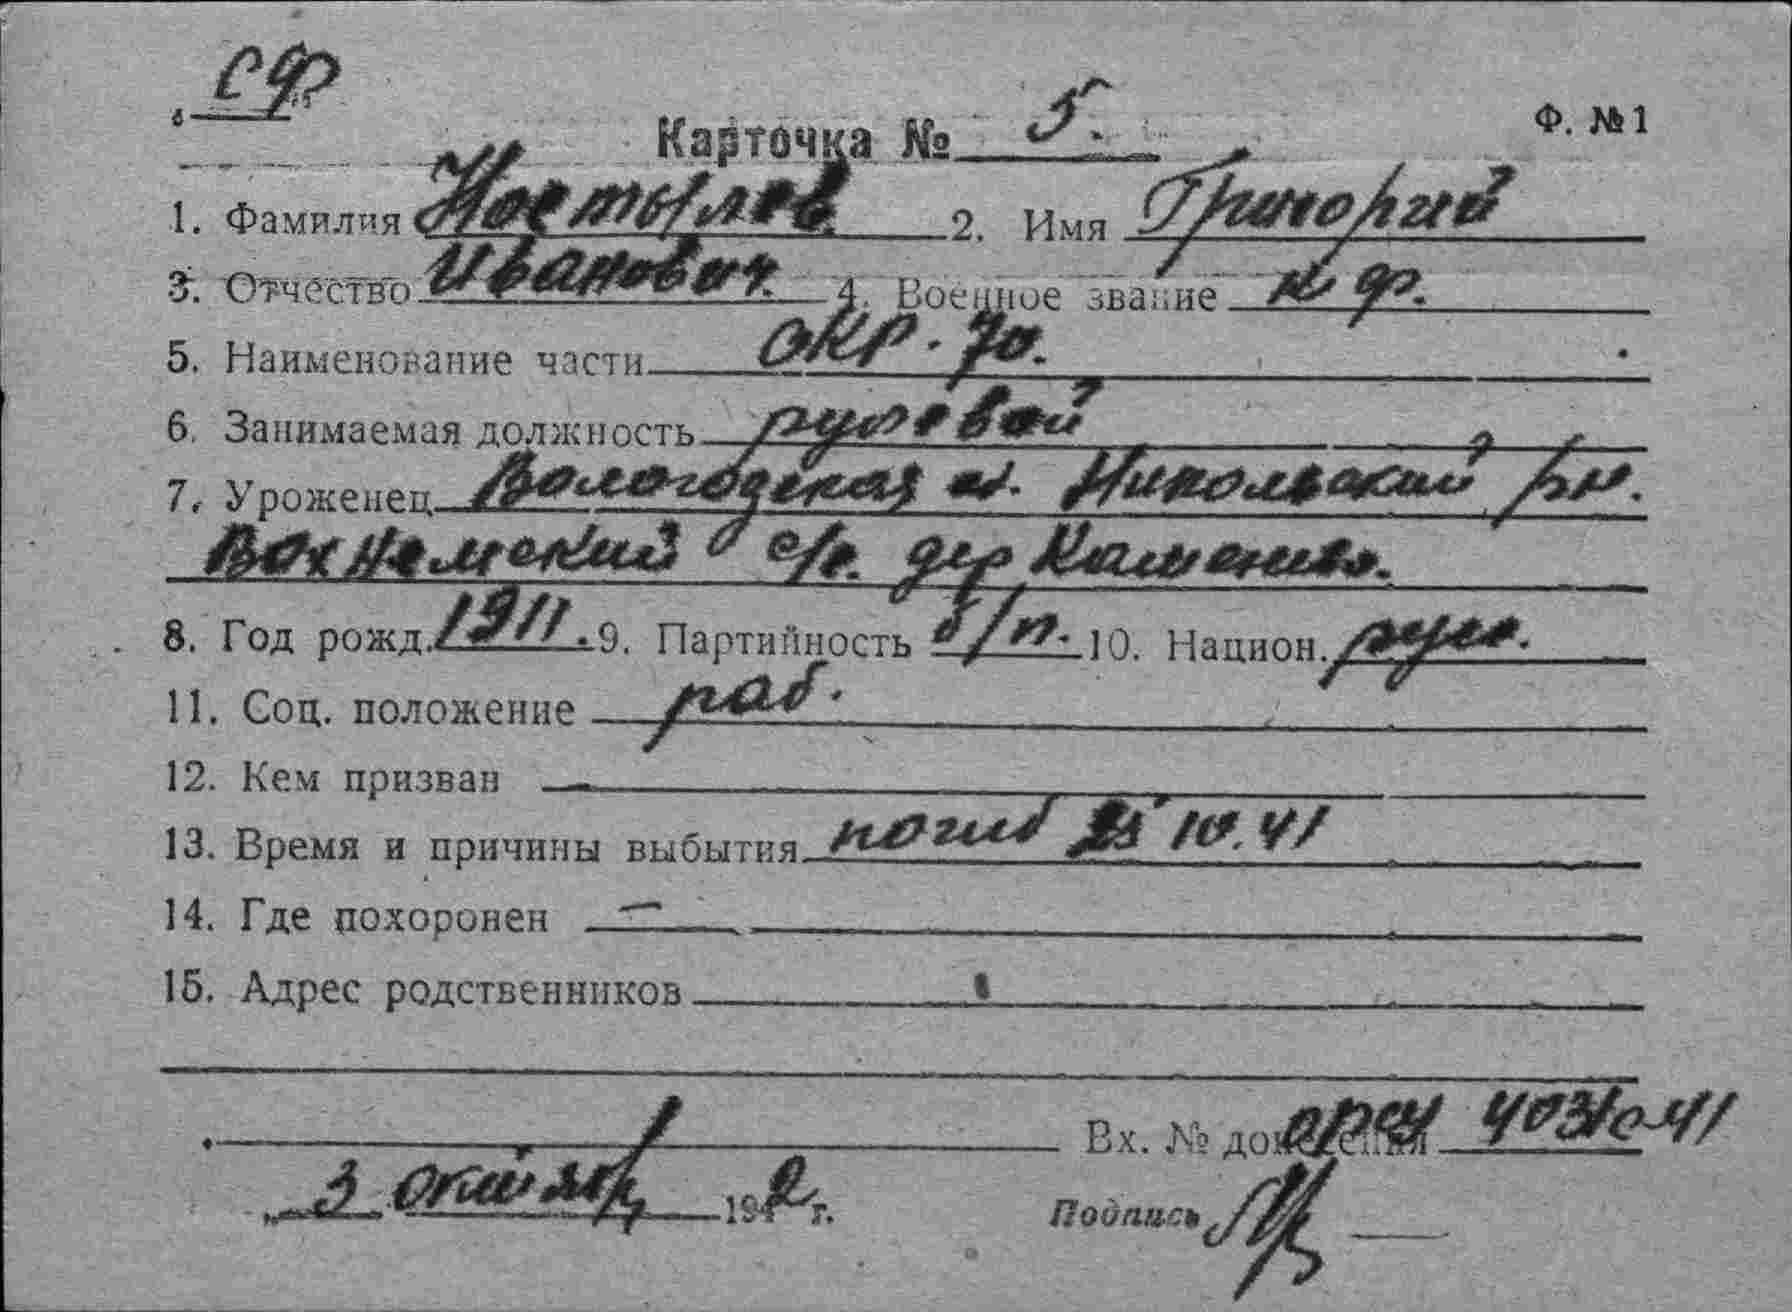 СФ
Карточка № 5.
Ф. №1
1. Фамилия Костылев 2. Имя Григорий
3. Отчество Иванович. 4. Военное звание к/ф.
5. Наименование части окр.
6. Занимаемая должность рулевой
7. Уроженец Вологодская о. Никольский рн.
с/с. дер
8. Год рожд. 1911. 9. Партийность б/п. 10. Национ. русс.
11. Соц. положение раб.
12. Кем призван —
13. Время и причины выбытия погиб 10.41
14. Где похоронен —
15. Адрес родственников
Вх. № донесения 41
„3 октябр 1942 г.
Подпись